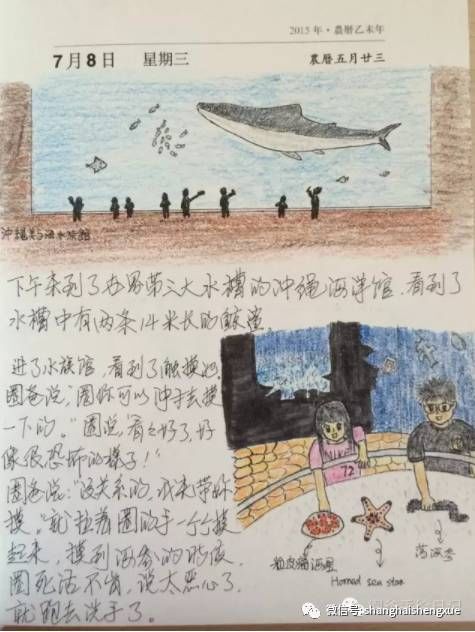 2015年·農曆乙未年
7月8日 星期三 農曆五月廿三
沖繩美ら海水族館
下午来到了世界第三大水槽的冲绳海洋馆,看到了
水槽中有两条14米长的鲸鲨。
进了水族馆,看到了触摸池
圈爸说:"圈你可以伸手去摸
一下的。"圈说:"看看好了,好
像很恐怖的样子!"
圈爸说:"没关系的,我来带你
摸。"就拉着圈的手一个个摸
起来,摸到海参的时候,
圈死活不肯,说太恶心了,
就跑去洗手了。
72
粒皮瘤海星
Horned sea star
荡海参
微信号: shanghaishengxue